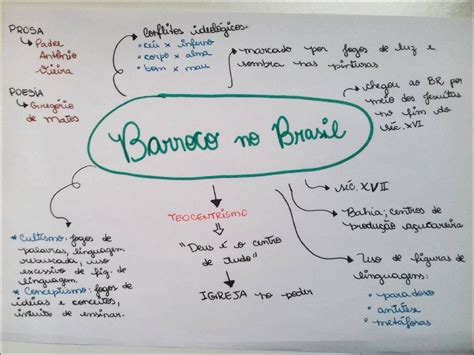 PROSA
↳ Padre
Antônio
Vieira
POESIA
↳ Gregório
de Matos
conflitos ideológicos:
• céu x inferno
• corpo x alma
• bom x mau
marcado por jogos de luz e
sombra nas pinturas
chegou ao BR por
meio dos jesuítas
no fim do
séc. XVI
Barroco no Brasil
* Cultismo: jogos de
palavras, linguagem
rebuscada, uso
excessivo de fig. de
linguagem.
* Conceptismo: jogos de
ideias e conceitos,
intuito de ensinar.
TEOCENTRISMO
"Deus é o centro
de tudo"
IGREJA no poder
séc. XVII
Bahia; centros de
produção açucareira
Uso de figuras de
linguagem:
• paradoxo
• antítese
• metáforas